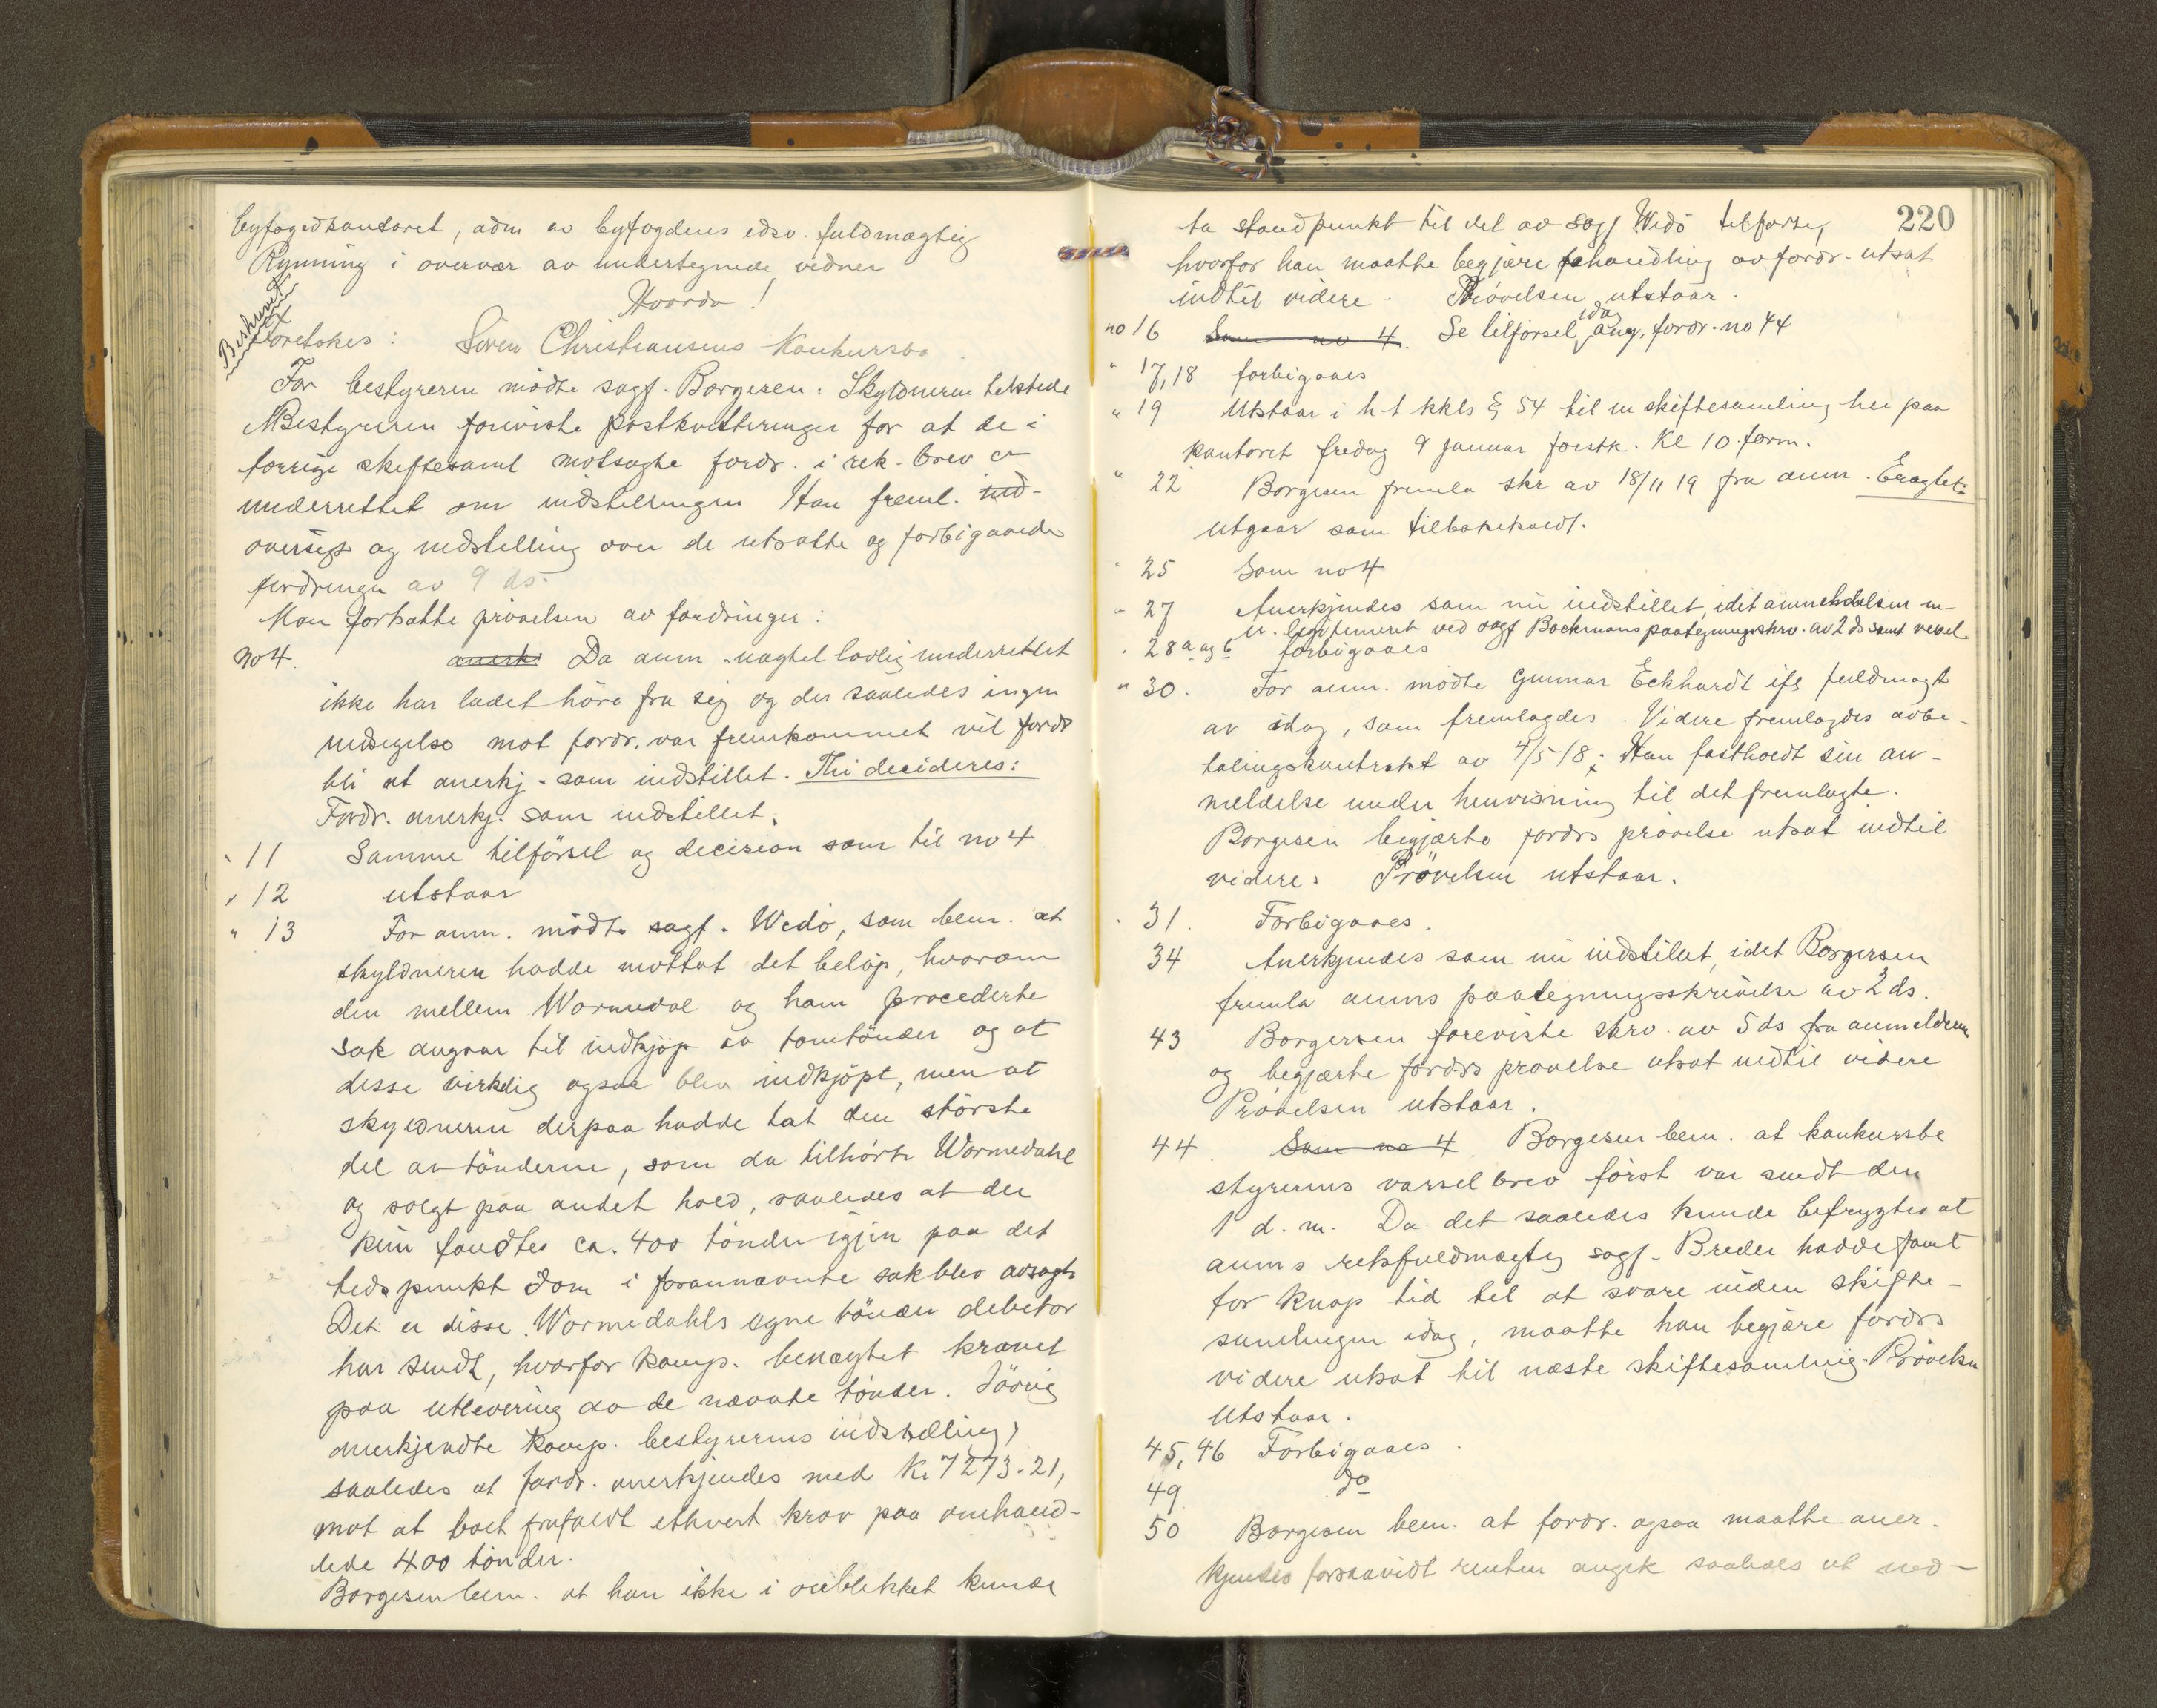 byfogedkontoret, adm av byfogdens edsv. fuldmægtig
Rynning i overvær av undertegnede vidner
Hvorda!
Beskrevet
Foretokes: Sören Christiansens Konkursbo.
For bestyreren mödte sagf. Borgesen. Skyldneren tilstede
Bestyreren foreviste postkvitteringer for at de i
forrige skiftesaml motsagte fordr. i rek. brev er
underrettet om indstillingen Han freml. ind-
oversigt og indstilling over de utsatte og forbigaaede
fordringer av 9 ds.
Man fortsatte prövelsen av fordringer:
No 4. anerk. Da anm. uagtet lovlig underrettet
ikke har ladet höre fra sig og der saaledes ingen
indsigelse mot fordr. var fremkommet vil fordr
bli at anerkj. som indstillet. Thi decideres:
Fordr. anerkj. som indstillet.
" 11 Samme tilförsel og decision som til no 4
" 12 utstaar
" 13 For anm. mödte sagf. Wedö, som bem. at
skyldneren hadde mottat det belöp, hvorom
den mellem Wormedal og ham procederte
sak angaar til indkjöp av tomtönder og at
disse virkelig ogsaa blev indkjöpt, men at
skyldneren derpaa hadde tat den störste
del av tönderne, som da tilhörte Wormedahl
og solgt paa andet hold, saaledes at der
kun fandtes ca. 400 tönder igjen paa det
tidspunkt Dom i forannævnte sak blev avsagt.
Det er disse Wormedahls egne tönder debitor
har sendt, hvorfor komp. benegtet kravet
paa utlevering av de nævnte tönder. Iövrig
anerkjendte komp. bestyrerens indstilling,
saaledes at fordr. anerkjendes med Kr 7273.21,
mot at boet frafaldt ethvert krav paa omhand-
lede 400 tönder.
Borgesen bem. at han ikke i öieblikket kunde
220
ta standpunkt til det av sagf Wedö tilförte,
hvorfor han maatte begjære behandling av fordr. utsat
indtil videre. Prövelsen utstaar.
no 16 Som no 4. Se tilförsel idag ang. fordr. no 44
" 17, 18 forbigaaes
" 19 Utstaar i h t kkls § 54 til en skiftesamling her paa
kontoret fredag 9 januar förstk. Kl 10 form.
" 22 Borgesen fremla skr av 18/11 19 fra anm. Eragtet:
utgaar som tilbakekaldt.
" 25 Som no 4
" 27 Anerkjendes som nu indstillet, idet anmeldelsen nu
er legitimeret ved sagf Bockmans paategningsskrv. av 2 ds samt vexel.
" 28 a og b forbigaaes
" 30. For anm. mödte Gunnar Eckhardt ifl fuldmagt
av idag, som fremlagdes. Videre fremlagdes avbe-
talingskontrakt av 4/5 18; Han fastholdt sin an-
meldelse under henvisning til det fremlagte.
Borgesen begjærte fordrs prövelse utsat indtil
videre. Prövelsen utstaar.
" 31. Forbigaaes.
34 Anerkjendes som nu indstillet, idet Borgersen
fremla anms paategningsskrivelse av 2 ds.
43 Borgersen foreviste skrv. av 5 ds fra anmelderen
og begjærte fordrs prövelse utsat indtil videre
Prövelsen utstaar.
44. Som no 4. Borgesen bem. at konkursbe
styrerens varselbrev först var sendt den
1 d. m. Da det saaledes kunde befrygtes at
anm s retsfuldmægtig sagf. Breder hadde faat
for knap tid til at svare inden skifte-
samlingen idag, maatte han begjære fordrs
videre utsat til næste skiftesamling. Prövelsen
Utstaar.
45, 46 Forbigaaes.
49 do
50 Borgesen bem. at fordr. ogsaa maatte aner-
kjendes forsaavidt renten angik saaledes at ned-